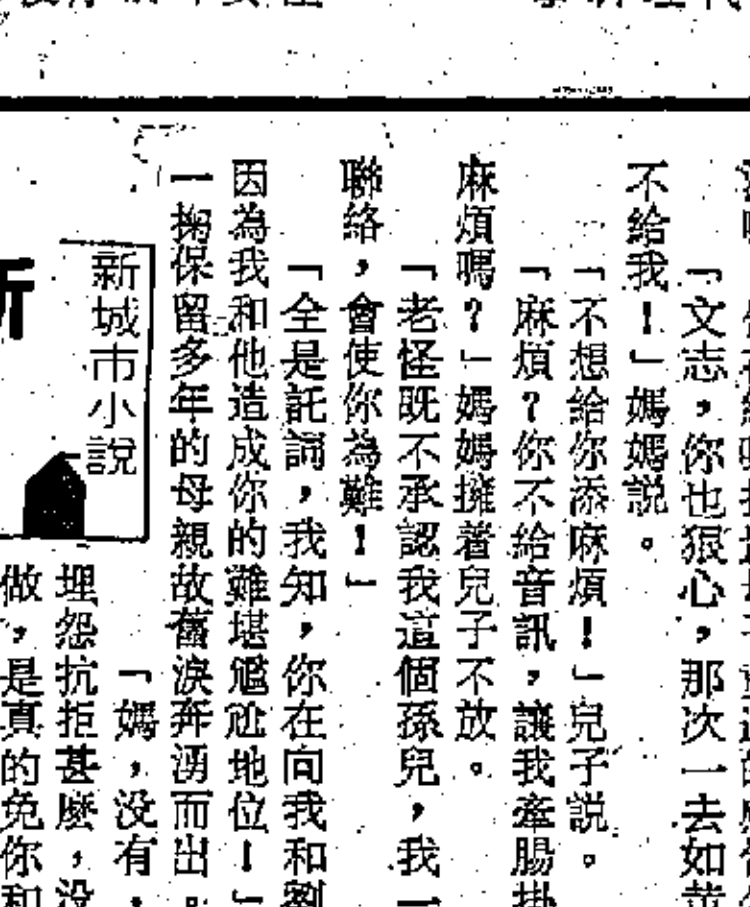 「文志，你也狠心，那次一去如黃
不給我！」媽媽説。
「不想給你添麻煩！」兒子説。
「麻煩？你不給音訊，讓我牽腸掛
麻煩嗎？」媽媽擁着兒子不放。
「老怪既不承認我這個孫兒，我一
聯絡，會使你為難！」
「全是託詞，我知，你在向我和劉
因為我和他造成你的難堪尷尬地位！」
一掬保留多年的母親故舊淚奔湧而出。
「媽，没有，
新城市小説
埋怨抗拒甚麼，没
做，是真的免你和
新